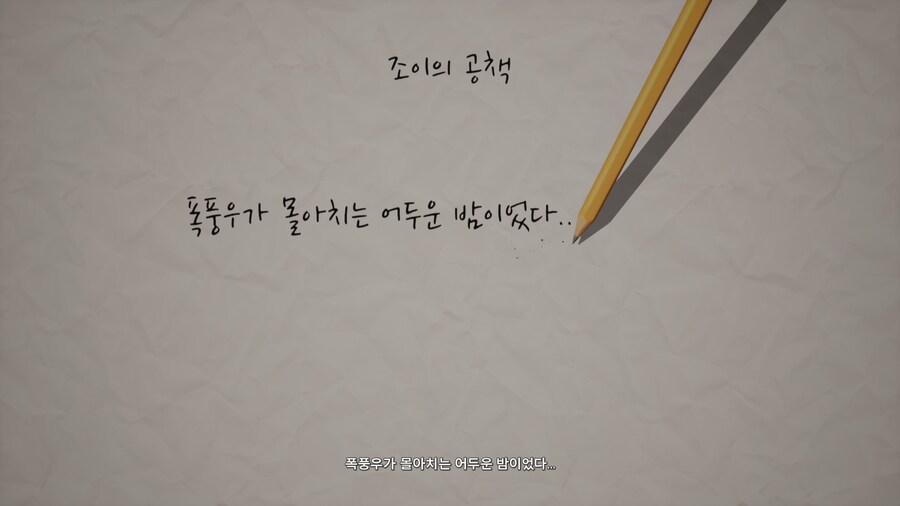 조이의 공책
폭풍우가 몰아치는 어두운 밤이었다..
폭풍우가 몰아치는 어두운 밤이었다...